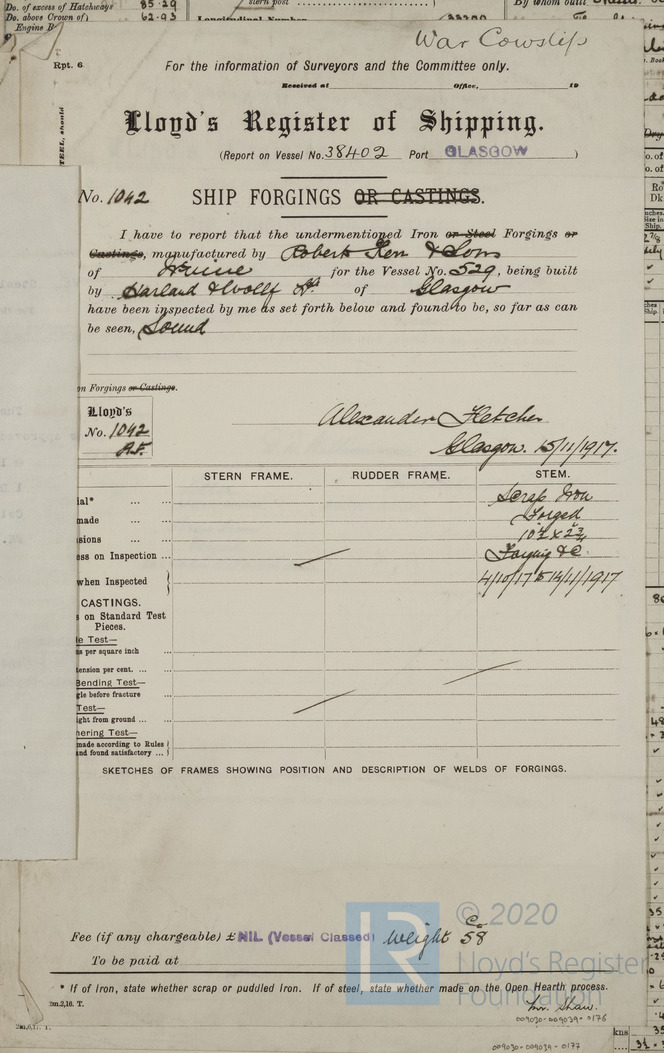 Do. of excess of Hatchways 85.29
Do. above Crown of 62.93
Engine
stern post
Longitudinal Number
By whom built
War Cowslip
Rpt. 6.
For the information of Surveyors and the Committee only.
Received at Office, 19
Lloyd's Register of Shipping.
(Report on Vessel No. 38402 Port GLASGOW )
No. 1042 SHIP FORGINGS OR CASTINGS.
I have to report that the undermentioned Iron or Steel Forgings or
Castings, manufactured by Robert Kerr & Sons
of Irvine for the Vessel No. 529, being built
by Harland & Wolff Ld of Glasgow
have been inspected by me as set forth below and found to be, so far as can
be seen, Sound
on Forgings or Castings.
Lloyd's
No. 1042
A.F.
Alexander Fletcher
Glasgow. 15/11/1917.
STERN FRAME. RUDDER FRAME. STEM.
ial* ... ... Scrap Iron
made ... ... Forged
sions ... ... 10 1/4 x 2 3/4
ess on Inspection ... Forging &c.
when Inspected 4/10/17 to 14/11/1917
CASTINGS.
s on Standard Test
Pieces.
le Test—
ns per square inch ...
tension per cent. ... ...
Bending Test—
gle before fracture ...
Test—
ight from ground ... ...
nering Test—
made according to Rules
and found satisfactory ...
SKETCHES OF FRAMES SHOWING POSITION AND DESCRIPTION OF WELDS OF FORGINGS.
Fee (if any chargeable) £ NIL (Vessel Classed) Weight 5 Cs 8
To be paid at
* If of Iron, state whether scrap or puddled Iron. If of steel, state whether made on the Open Hearth process.
2m,2,16. T.
Mr. Shaw.
009030-009039-0176
009030-009039-0177
LR
© 2020
Lloyd's Register
Foundation